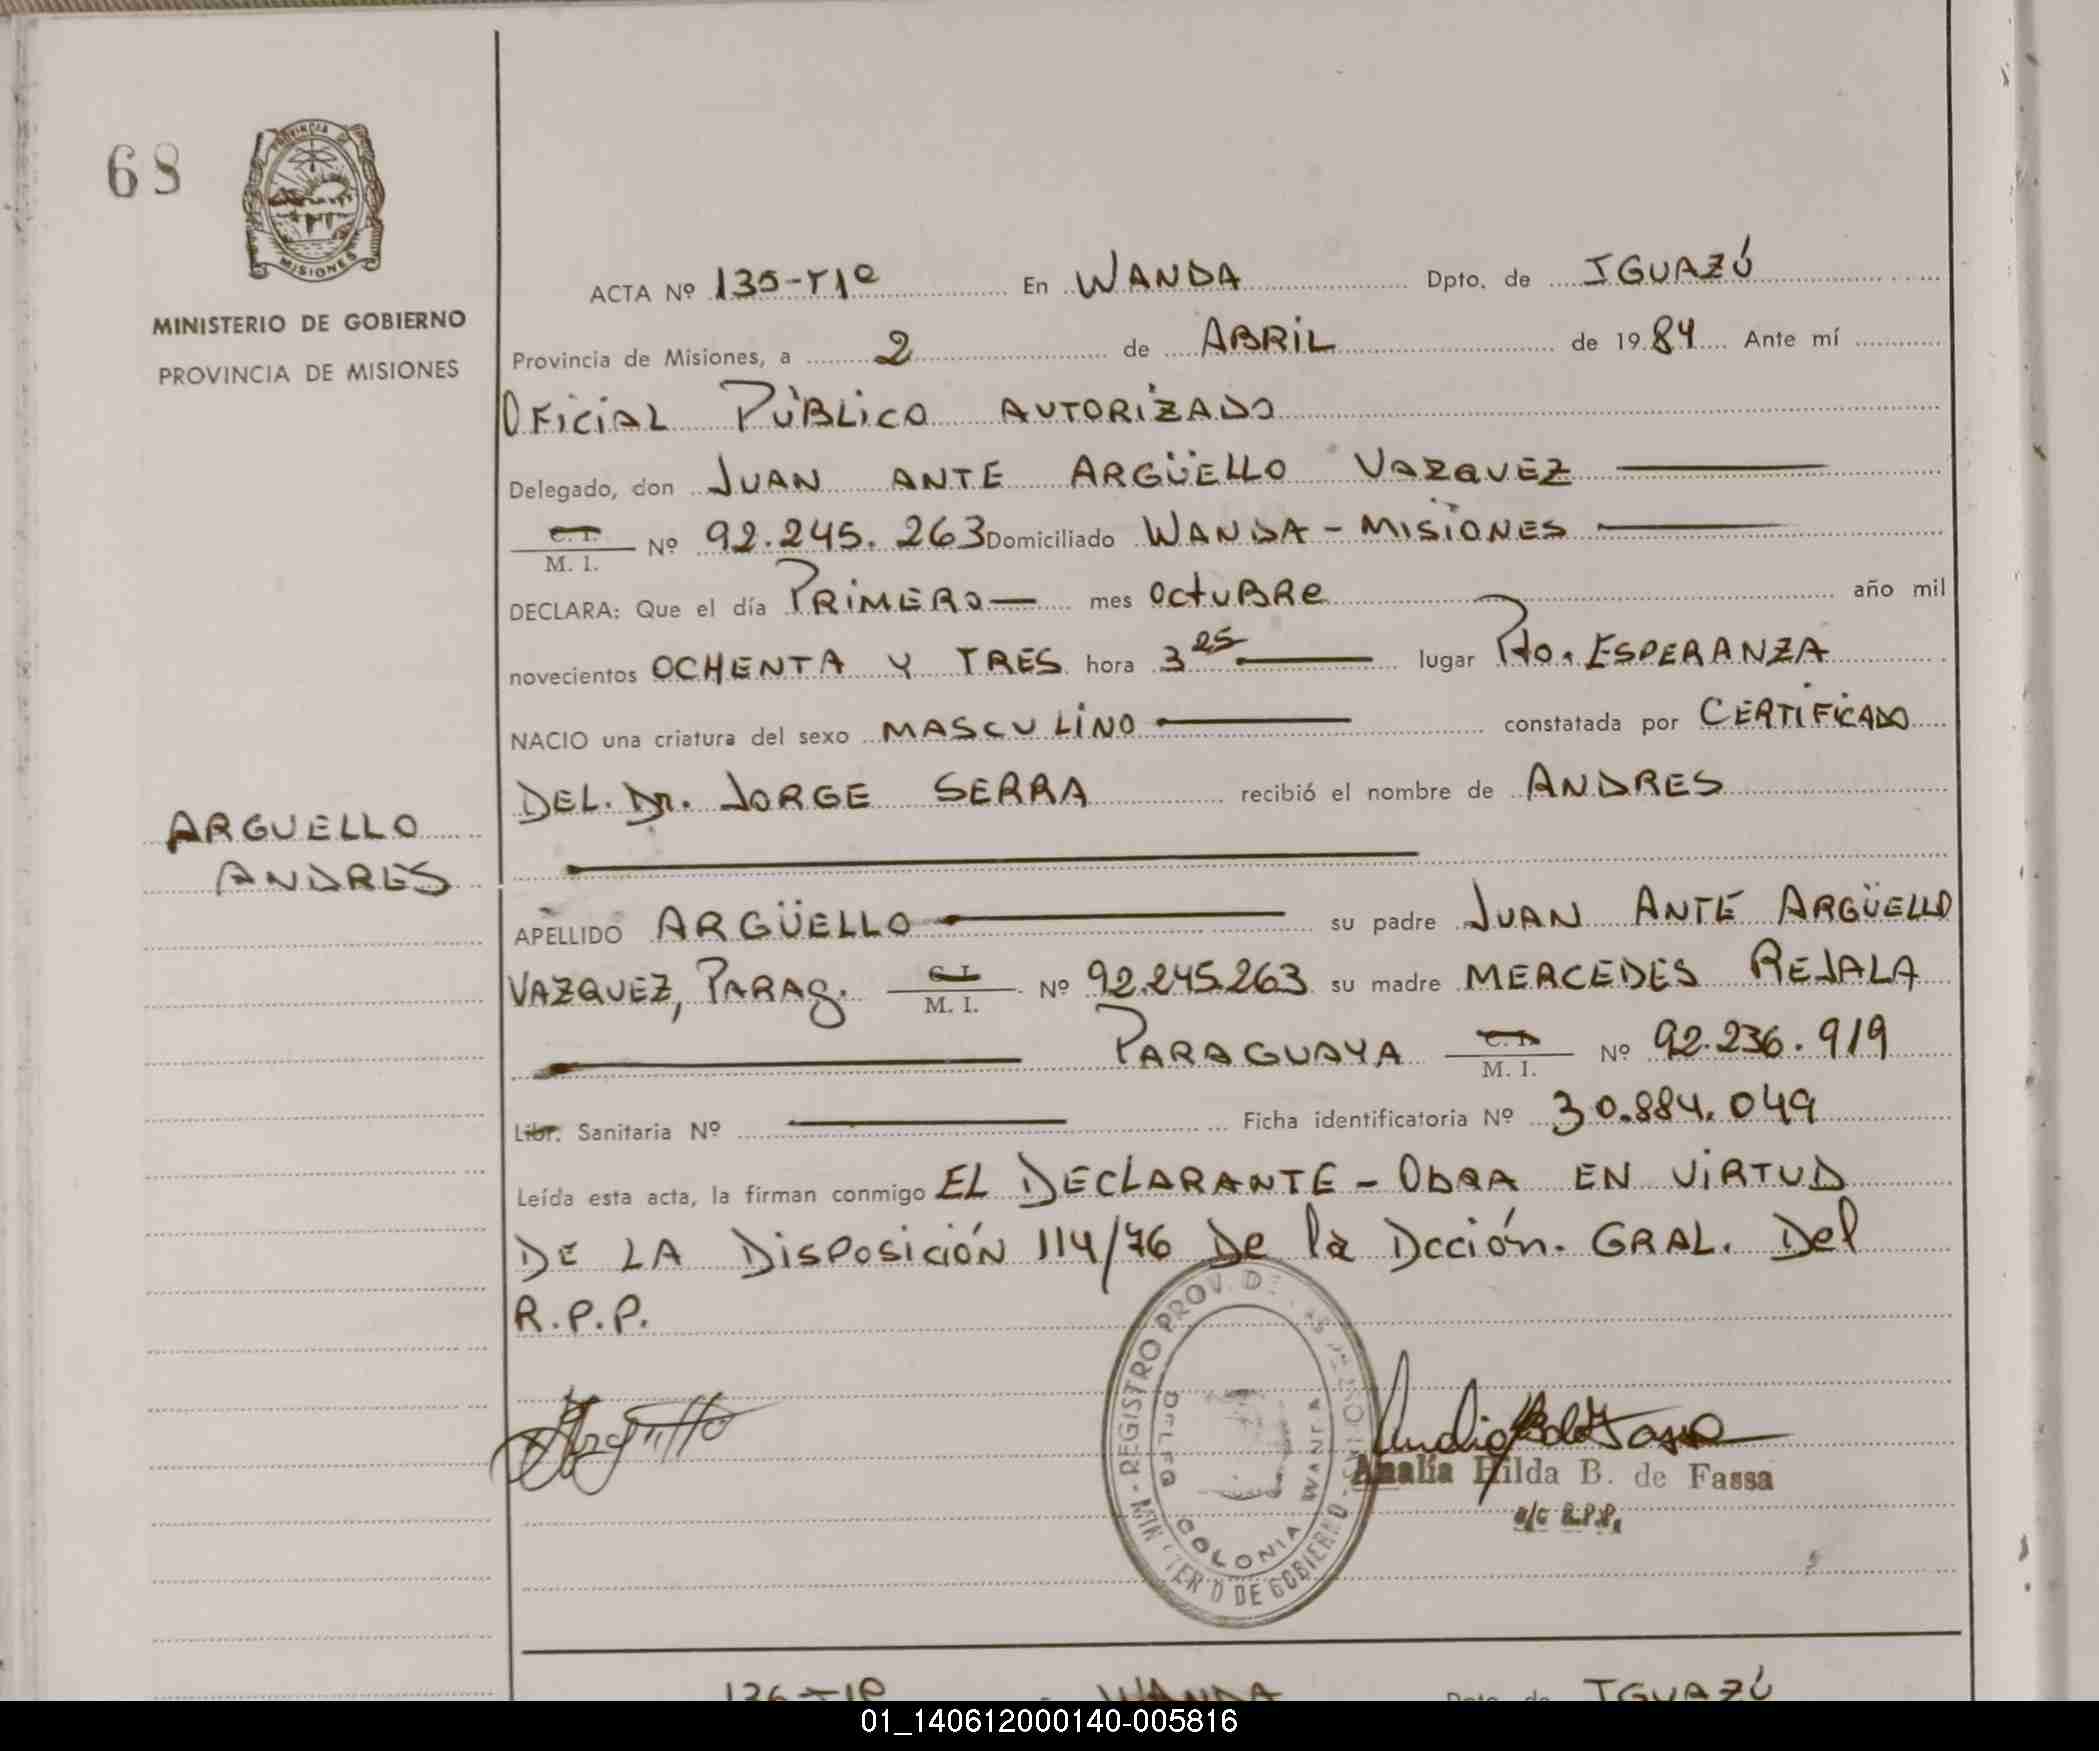 68
PROVINCIA DE
MISIONES
MINISTERIO DE GOBIERNO
PROVINCIA DE MISIONES
ARGUELLO
ANDRES
ACTA Nº 135-T1º En WANDA Dpto. de IGUAZÚ
Provincia de Misiones, a 2 de ABRIL de 1984 Ante mí
OFICIAL PÚBLICO AUTORIZADO
Delegado, don JUAN ANTE ARGÜELLO VAZQUEZ
C. I. / M. I. Nº 92.245.263 Domiciliado WANDA - MISIONES
DECLARA: Que el día PRIMERO mes OCTUBRE año mil
novecientos OCHENTA Y TRES hora 3 25 lugar Pto. ESPERANZA
NACIO una criatura del sexo MASCULINO constatada por CERTIFICADO
DEL. Dr. JORGE SERRA recibió el nombre de ANDRES
APELLIDO ARGÜELLO su padre JUAN ANTE ARGÜELLO
VAZQUEZ, PARAG. C. I. / M. I. Nº 92.245.263 su madre MERCEDES REJALA
PARAGUAYA C. I. / M. I. Nº 92.236.919
Libr. Sanitaria Nº Ficha identificatoria Nº 30.884.049
Leída esta acta, la firman conmigo EL DECLARANTE - OBRA EN VIRTUD
DE LA DISPOSICIÓN 114/76 De la Dcción. GRAL. Del
R.P.P.
REGISTRO PROV. DE LAS PERSONAS
DELEG COLONIA WANDA
MINISTERIO DE GOBIERNO
Argüello
Analía Hilda B. de Fassa
a/c R.P.P.
136-T1º WANDA Dpto. de IGUAZÚ
01_140612000140-005816